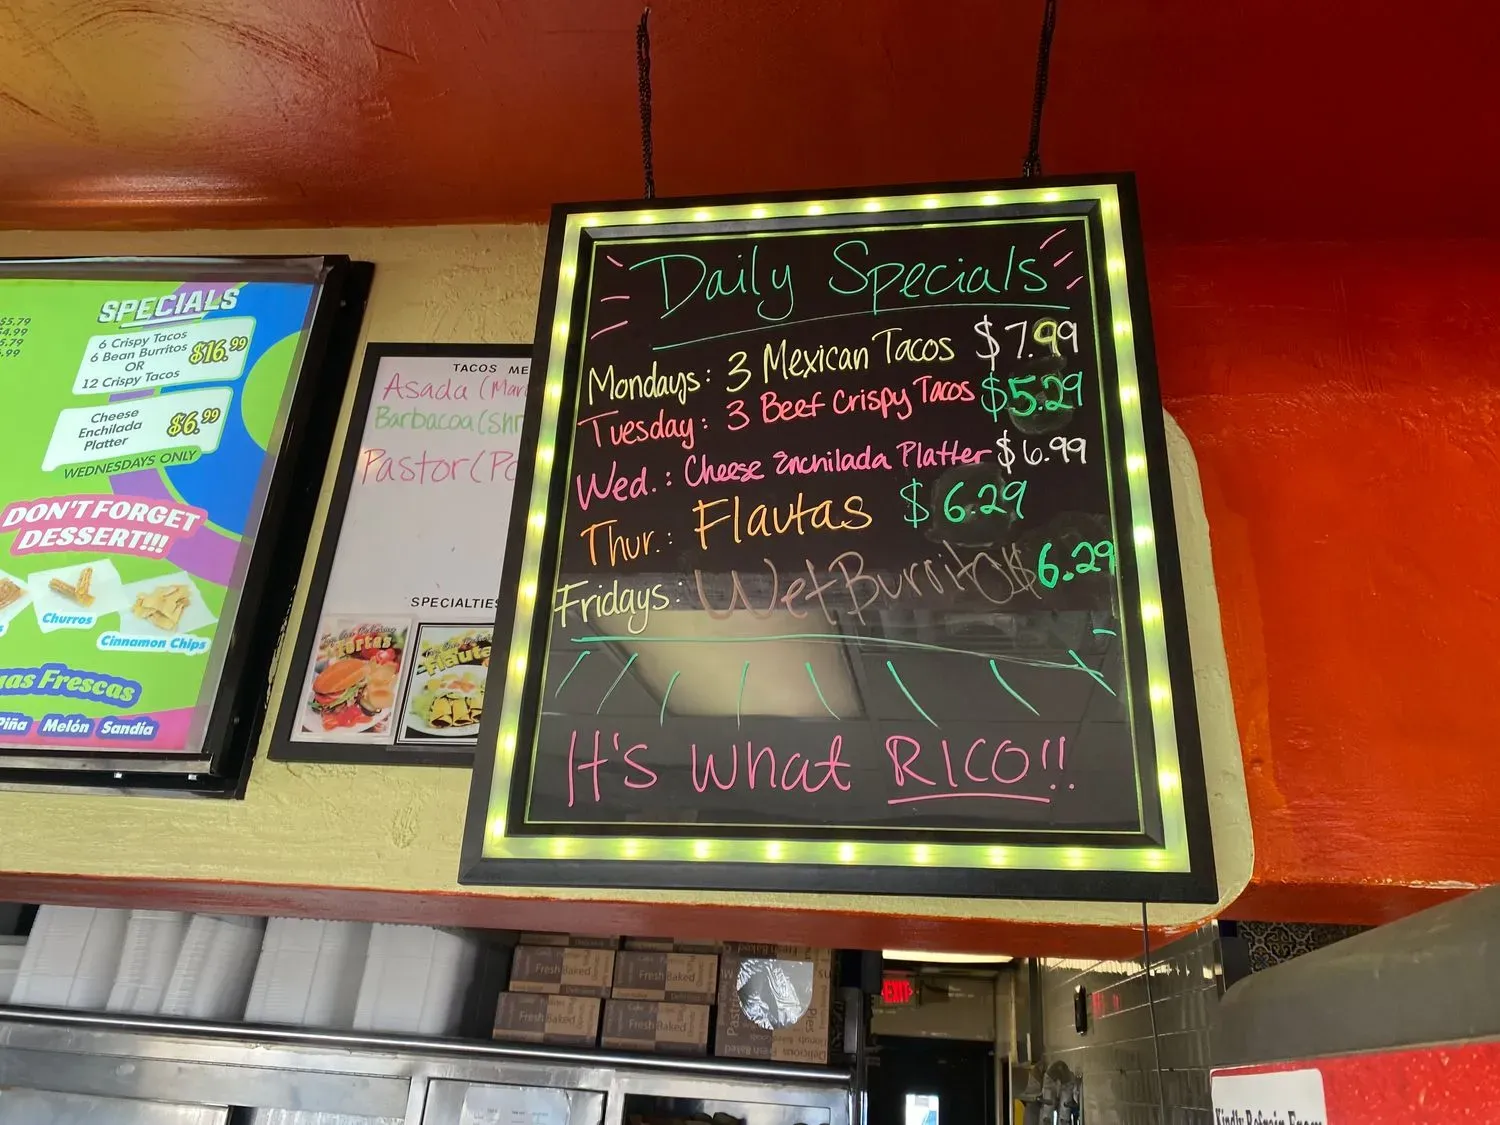 $5.79
4.99
5.79
.99
SPECIALS
6 Crispy Tacos
6 Bean Burritos
OR
12 Crispy Tacos
$16.99
Cheese
Enchilada
Platter
$6.99
WEDNESDAYS ONLY
DON'T FORGET
DESSERT!!!
Churros
Cinnamon Chips
uas Frescas
Piña
Melón
Sandía
TACOS ME
Asada (Mar
Barbacoa (Shr
Pastor (Po
SPECIALTIES
Tortas
Flauta
Daily Specials
Mondays: 3 Mexican Tacos $7.99
Tuesday: 3 Beef Crispy Tacos $5.29
Wed.: Cheese Enchilada Platter $6.99
Thur.: Flautas $6.29
Fridays: Wet Burrito $6.29
It's what RICO!!
Fresh Baked
Fresh Baked
Fresh Baked
Fresh Baked
EXIT
Kindly Refrain From